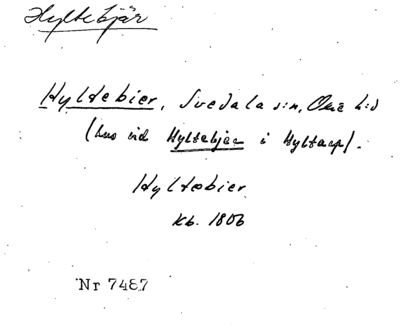 Hyltebjär
Hyltebier, Svedala s:n, Oxie h:d
(hus vid Hyltebjär i Hyltarp).
Hyltebier
kb. 1806
Nr 7487